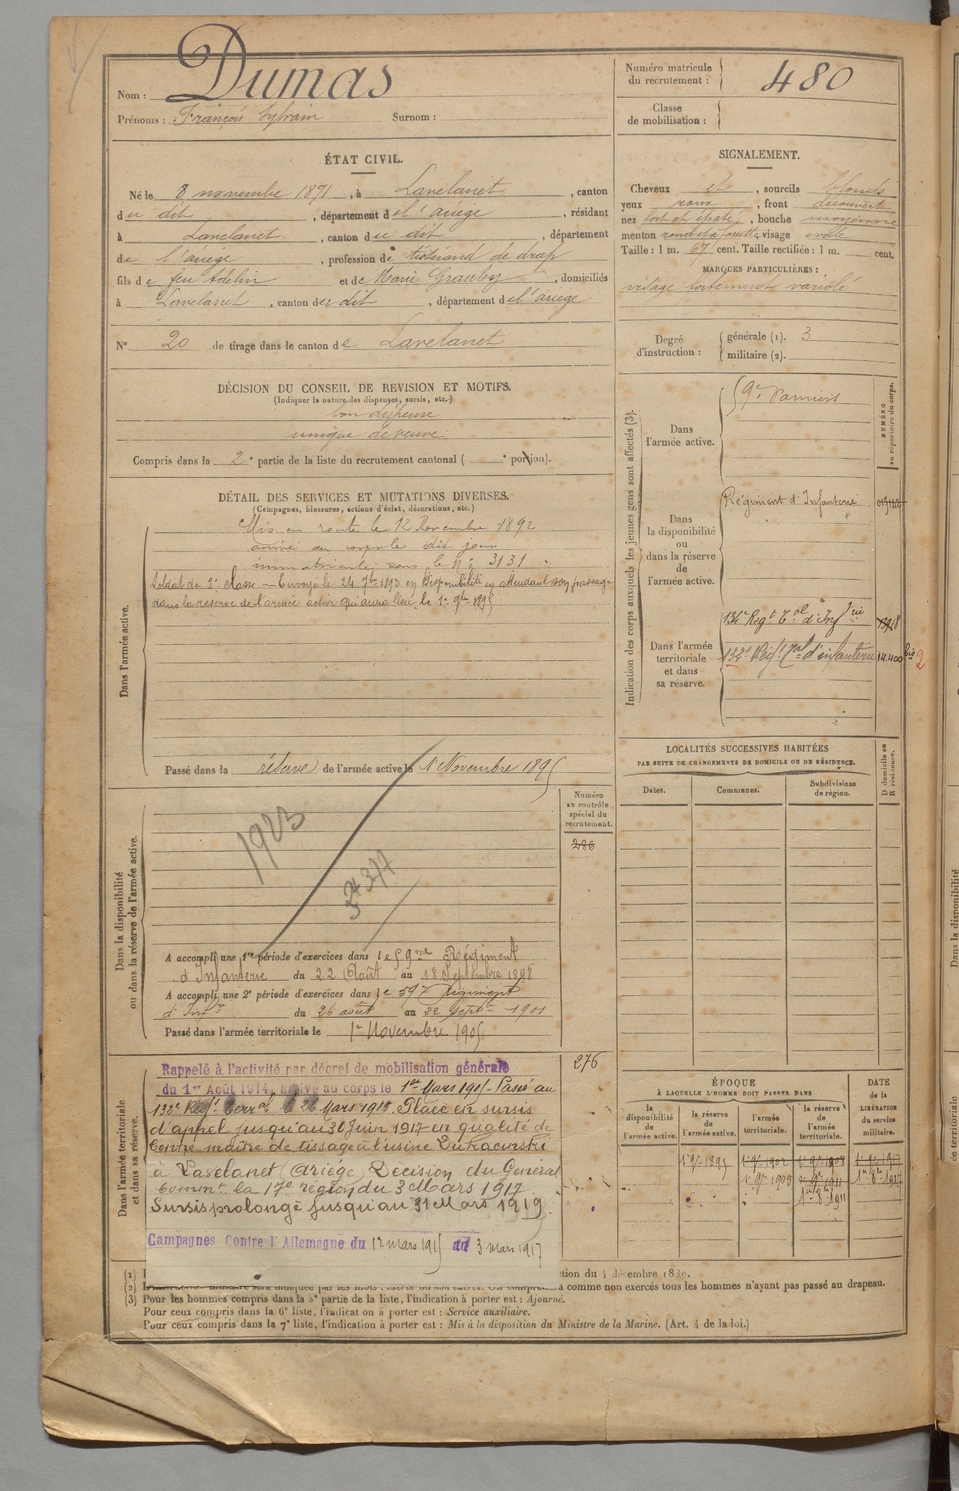 Nom : Dumas
Prénoms : François Sylvain Surnom :
Numéro matricule du recrutement : 480
Classe de mobilisation :
ÉTAT CIVIL.
Né le 8 novembre 1871, à Lavelanet, canton
du dit, département de l'ariège, résidant
à Lavelanet, canton du dit, département
de l'ariège, profession de tisserand de drap
fils de feu Adelin et de Marie, domiciliés
à Lavelanet, canton du dit, département de l'ariège
N° 20 de tirage dans le canton de Lavelanet
SIGNALEMENT.
Cheveux et, sourcils blonds
yeux roux, front découvert
nez fort et épaté, bouche moyenne
menton rond et à fossette, visage ovale
Taille : 1 m. 67 cent. Taille rectifiée : 1 m. cent.
MARQUES PARTICULIÈRES :
visage fortement variolé
Degré d'instruction : générale (1). 3
militaire (2).
DÉCISION DU CONSEIL DE REVISION ET MOTIFS.
(Indiquer la nature des dispenses, sursis, etc.)
bon dispensé
unique de veuve
Compris dans la 2e partie de la liste du recrutement cantonal ( e portion).
DÉTAIL DES SERVICES ET MUTATIONS DIVERSES.
(Campagnes, blessures, actions d'éclat, décorations, etc.)
Dans l'armée active.
Mis en route le 12 Novembre 1892
arrivé au corps le dit jour
immatriculé sous le n° 3131
Soldat de 2e classe. — Envoyé le 24 7bre 1893 en disponibilité en attendant son passage
dans la réserve de l'armée active qui aura lieu le 1er 9bre 1895
Passé dans la réserve de l'armée active le 1er Novembre 1895
Indication des corps auxquels les jeunes gens sont affectés (3).
NUMÉRO au répertoire du corps.
Dans l'armée active.
59e Pamiers
Dans la disponibilité ou dans la réserve de l'armée active.
Régiment d'Infanterie
Dans l'armée territoriale et dans sa réserve.
136e Regt Tal d'Infrie
132e Régt Tal d'infanterie 14.400 bis 2
LOCALITÉS SUCCESSIVES HABITÉES
PAR SUITE DE CHANGEMENTS DE DOMICILE OU DE RÉSIDENCE.
Dates. Communes. Subdivisions de région. D domicile ou R résidence.
Dans la disponibilité ou dans la réserve de l'armée active.
Numéro au contrôle spécial du recrutement.
286
1923
A accompli une 1re période d'exercices dans le 59me Régiment
d'Infanterie du 22 Août au 18 Septembre 1898
A accompli une 2e période d'exercices dans le 59e Régiment
d'Infie du 26 août au 22 Septre 1901
Passé dans l'armée territoriale le 1er Novembre 1905
Dans l'armée territoriale et dans sa réserve.
276
Rappelé à l'activité par décret de mobilisation générale
du 1er Août 1914, arrivé au corps le 1er Mars 1915. Passé au
132e Régt Terral le 26 Mars 1915. Placé en sursis
d'appel jusqu'au 30 Juin 1917 en qualité de
Contre maître de tissage à l'usine
à Lavelanet (Ariège) Décision du Général
Commt la 17e région du 3 Mars 1917
Sursis prolongé jusqu'au 31 Mars 1919.
Campagnes Contre l'Allemagne du 12 mars 1915 au 3 mars 1917
ÉPOQUE
À LAQUELLE L'HOMME DOIT PASSER DANS
la disponibilité de l'armée active. la réserve de l'armée active. l'armée territoriale. la réserve de l'armée territoriale.
DATE de la LIBÉRATION du service militaire.
1er 9bre 1895 1er 9bre 1902 1er 9bre 1908
1er 9bre 1905 1er 9bre 1911
(1)
(2)
comme non exercés tous les hommes n'ayant pas passé au drapeau.
(3) Pour les hommes compris dans la 3e partie de la liste, l'indication à porter est : Ajourné.
Pour ceux compris dans la 6e liste, l'indication à porter est : Service auxiliaire.
Pour ceux compris dans la 7e liste, l'indication à porter est : Mis à la disposition du Ministre de la Marine. (Art. 4 de la loi.)